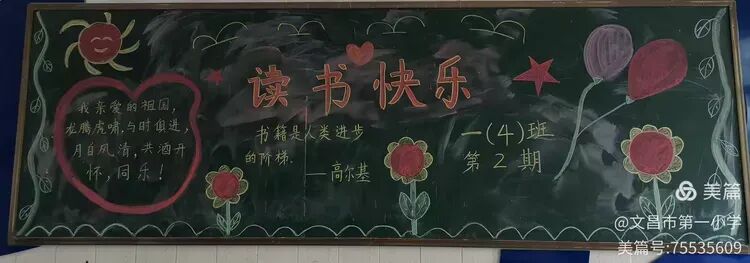 读书快乐
我亲爱的祖国，
龙腾虎啸，与时俱进，
月白风清，共酒开
怀，同乐！
书籍是人类进步
的阶梯．
——高尔基
一(4)班
第2期
美篇
@文昌市第一小学
美篇号:75535609